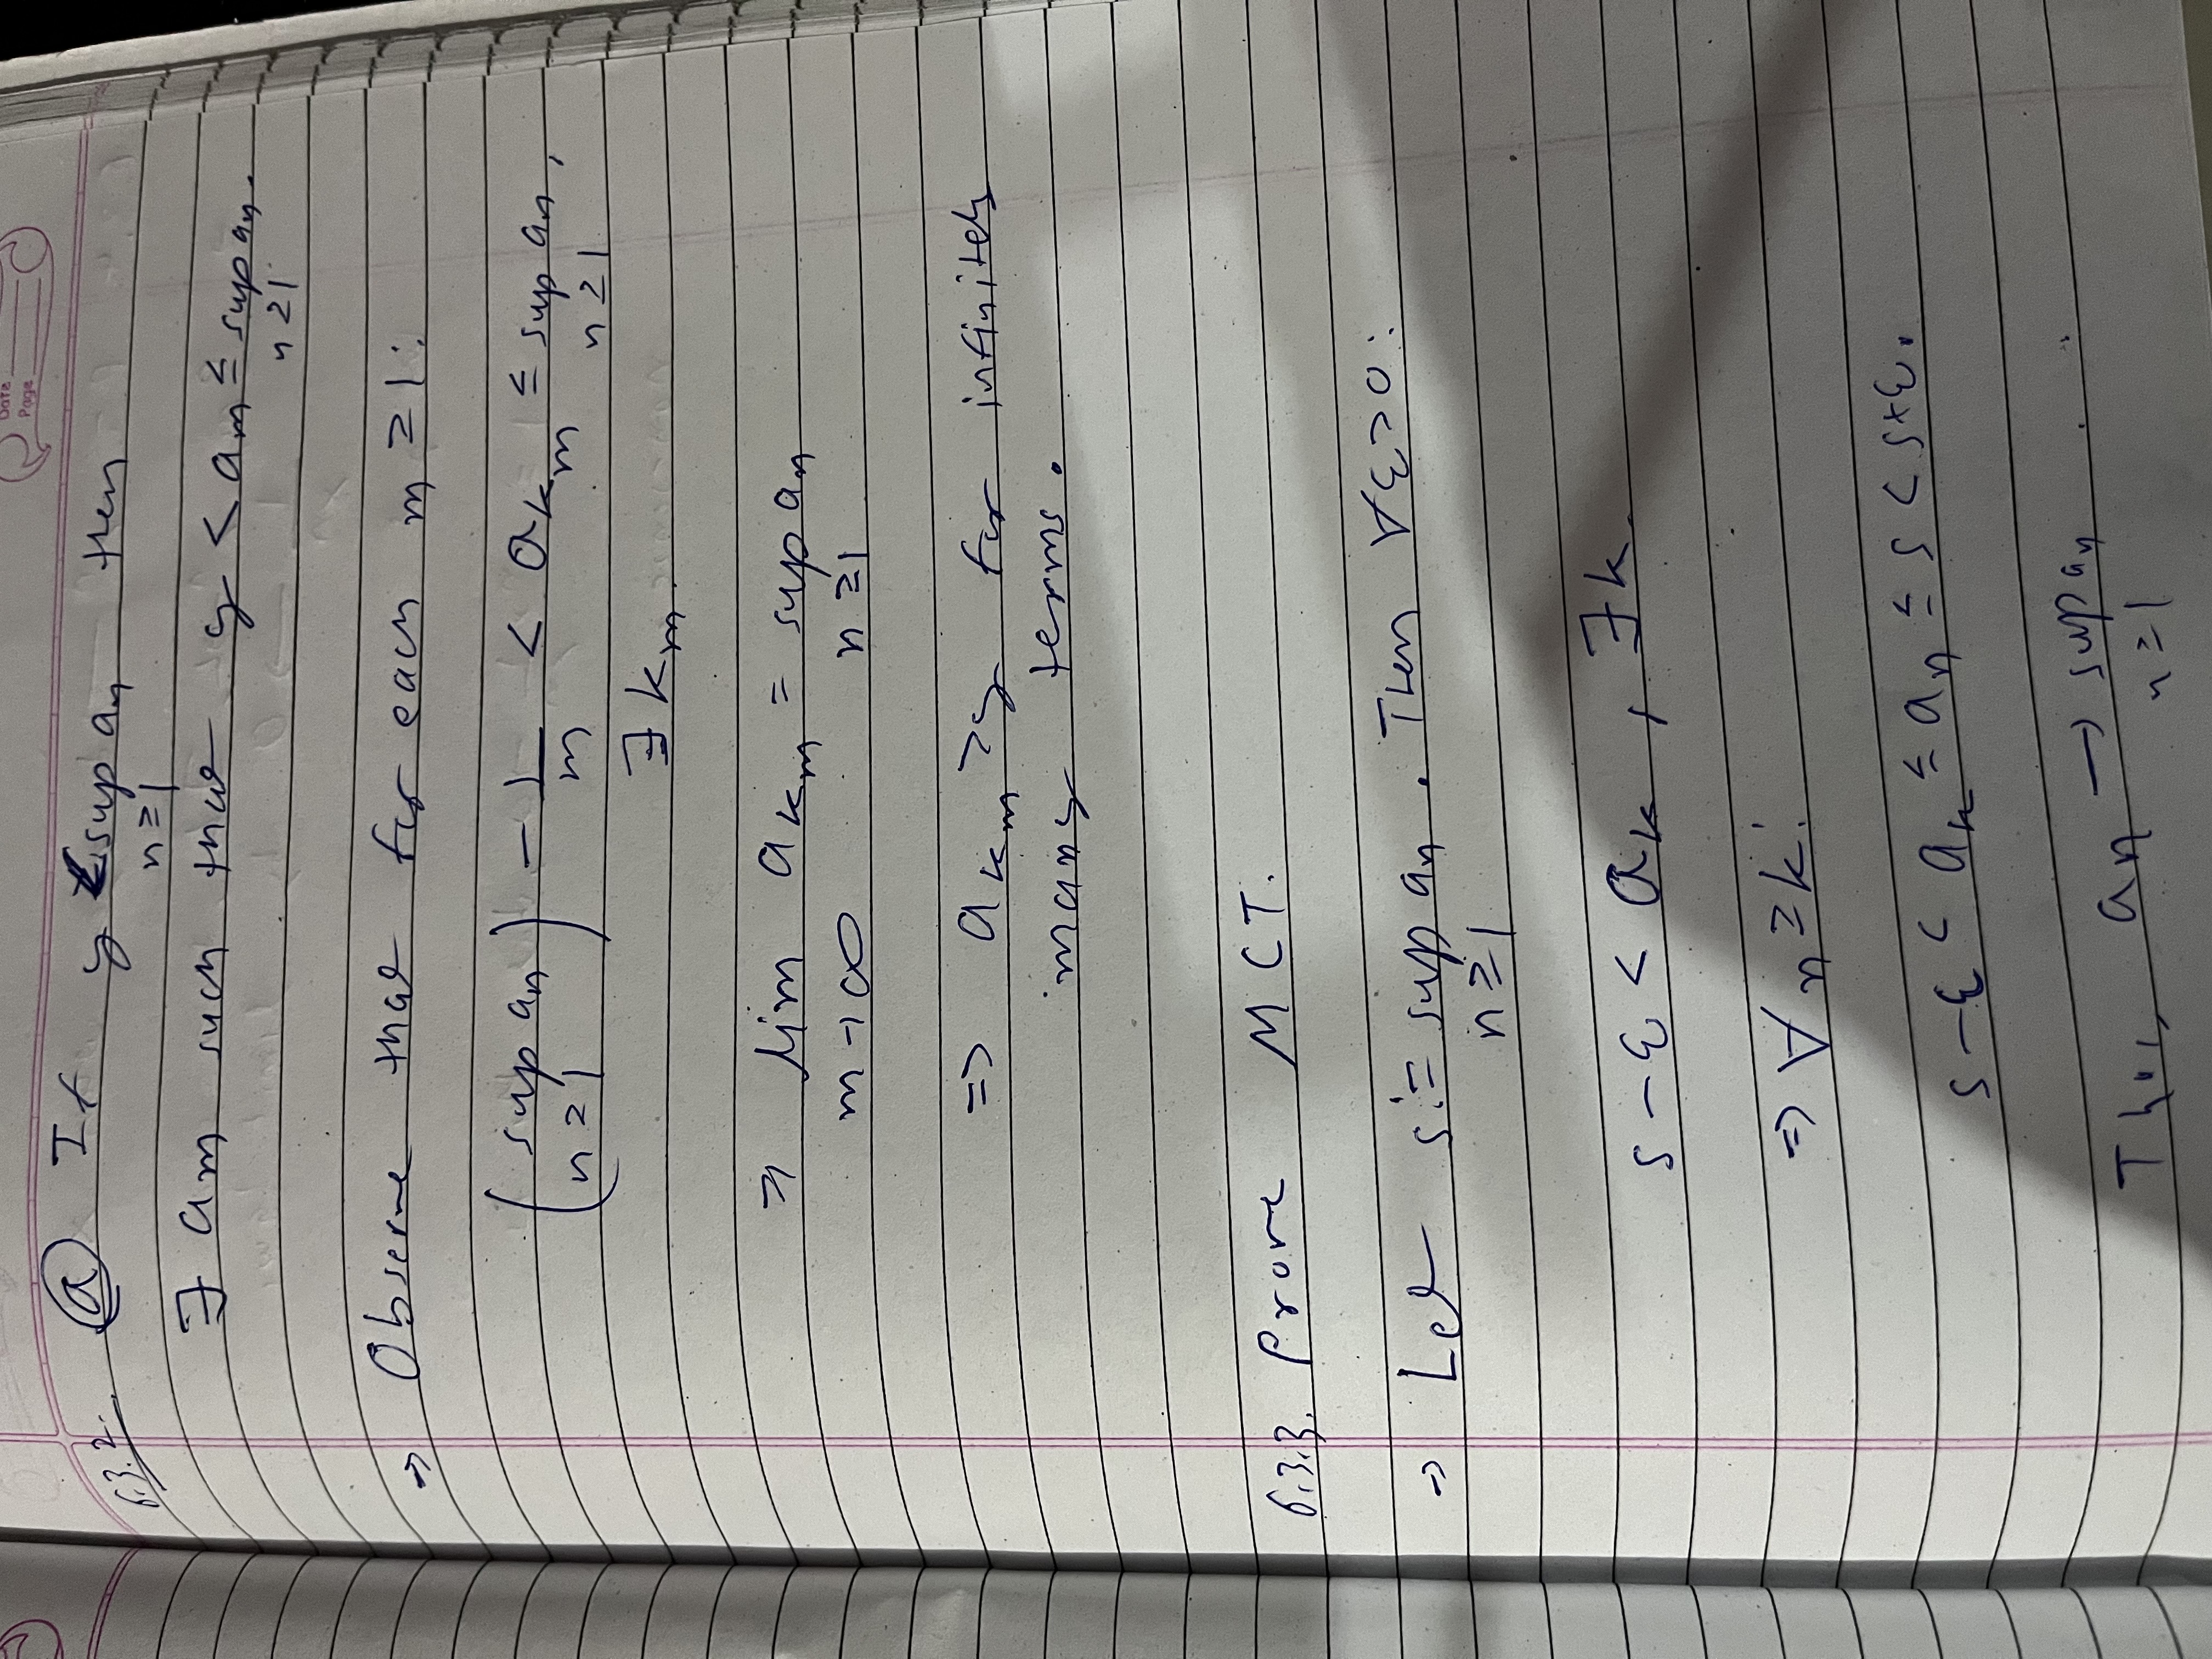 Date
Page
6.3.2. (a) If y < sup aₙ then
n ≥ 1
∃ aₘ such that y < aₘ ≤ sup aₙ.
n ≥ 1
⇒ Observe that for each m ≥ 1:
( sup aₙ ) - 1/m < a_{k_m} ≤ sup aₙ,
n ≥ 1 n ≥ 1
∃ k_m.
⇒ lim a_{k_m} = sup aₙ
m → ∞ n ≥ 1
=> a_{k_m} > y for infinitely
many terms.
6.3.3. Prove MCT.
→ Let s := sup aₙ. Then ∀ε>0:
n ≥ 1
s - ε < a_k, ∃ k.
=> ∀ n ≥ k:
s - ε < a_k ≤ aₙ ≤ s < s+ε.
Thus, aₙ → sup aₙ
n ≥ 1